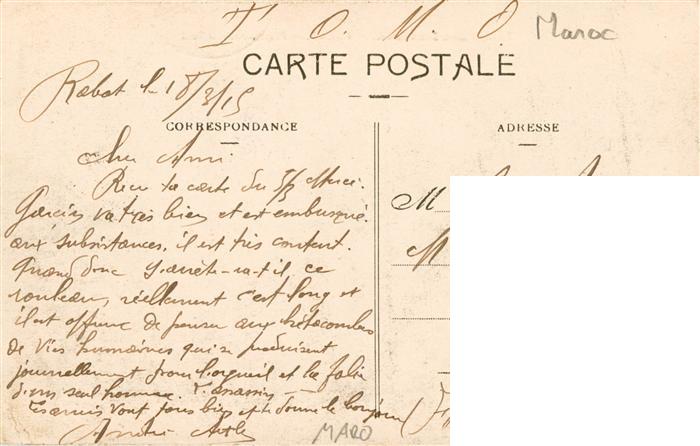 T. O. M. O
Maroc
CARTE POSTALE
Rabat le 18/3/15
CORRESPONDANCE
ADRESSE
Cher Ami
Reçu ta carte du 5/3 merci.
Garcin va très bien et est embusqué
aux subsistances, il est très content.
Quand donc s'arrête-ra-t-il, ce
rouleau, réellement c'est long et
il est affreux de penser aux hétacombes
de vies humaines qui se produisent
journellement pour l'orgueil et la folie
d'un seul homme. L'assassin
Les amis vont tous bien et te donne le bonjour
André
M
M
MARO